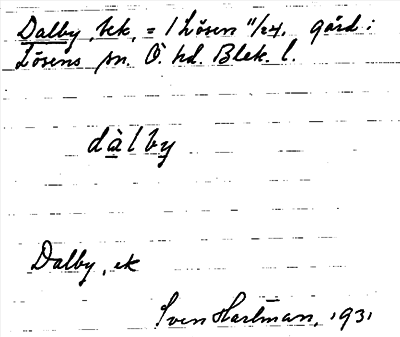 Dalby, bek, = 1 Lösen 11/24. gård i
Lösens sn. Ö. hd. Blek. l.
dàlby
Dalby, ek
Sven Hartman, 1931